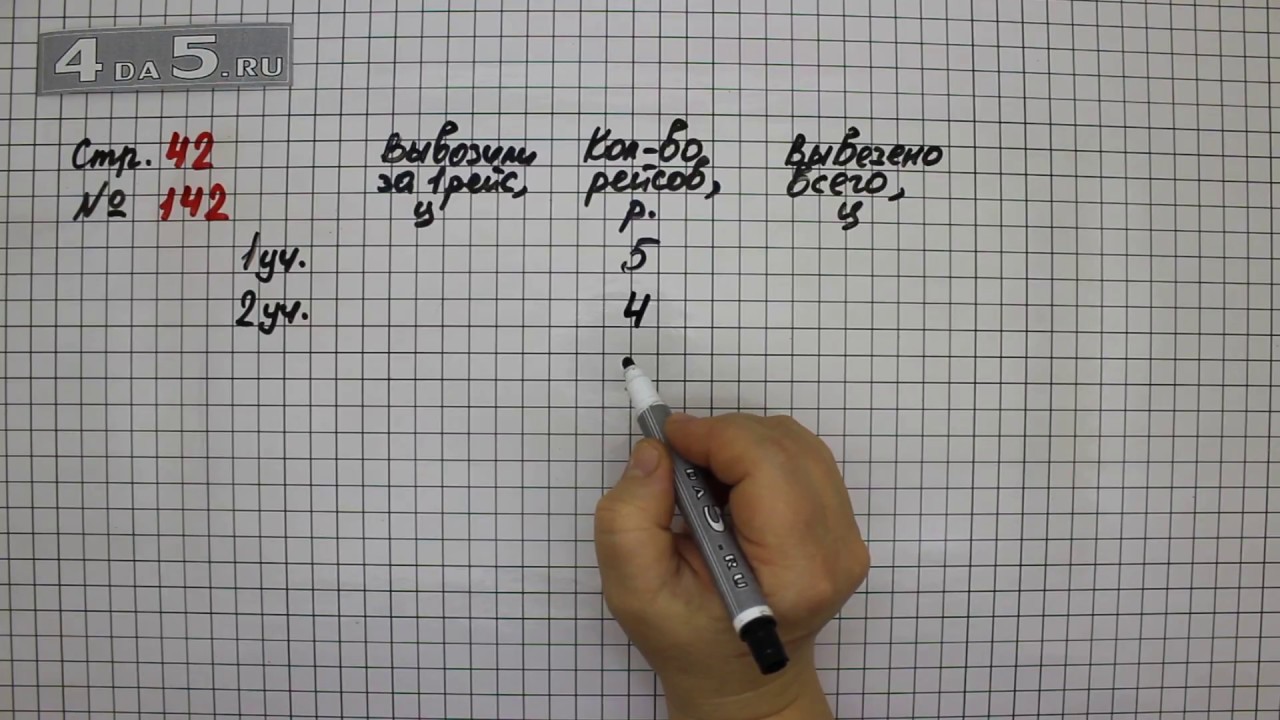 4 DA 5.RU
Стр. 42
№ 142
Вывозили
за 1 рейс,
ц
Кол-во
рейсов,
р.
Вывезено
всего,
ц
1 уч.
5
2 уч.
4
DA 5.RU